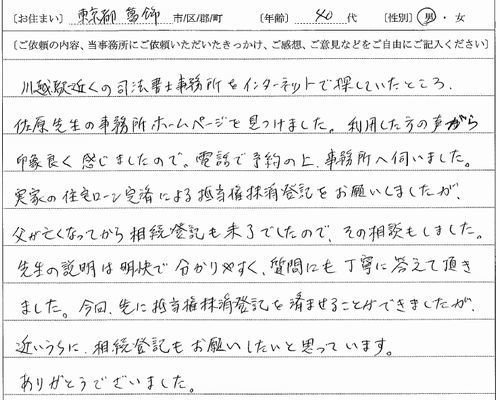 ［お住まい］ 東京都 葛飾 市/区/郡/町 ［年齢］ 40 代 ［性別］ 男・女
［ご依頼の内容、当事務所にご依頼いただいたきっかけ、ご感想、ご意見などをご自由にご記入ください］
川越駅近くの司法書士事務所をインターネットで探していたところ、
佐原先生の事務所ホームページを見つけました。利用した方の声から
印象良く感じましたので、電話で予約の上、事務所へ伺いました。
実家の住宅ローン完済による抵当権抹消登記をお願いしましたが、
父が亡くなってから相続登記も未了でしたので、その相談もしました。
先生の説明は明快で分かりやすく、質問にも丁寧に答えて頂き
ました。今回、先に抵当権抹消登記を済ませることができましたが、
近いうちに、相続登記もお願いしたいと思っています。
ありがとうございました。